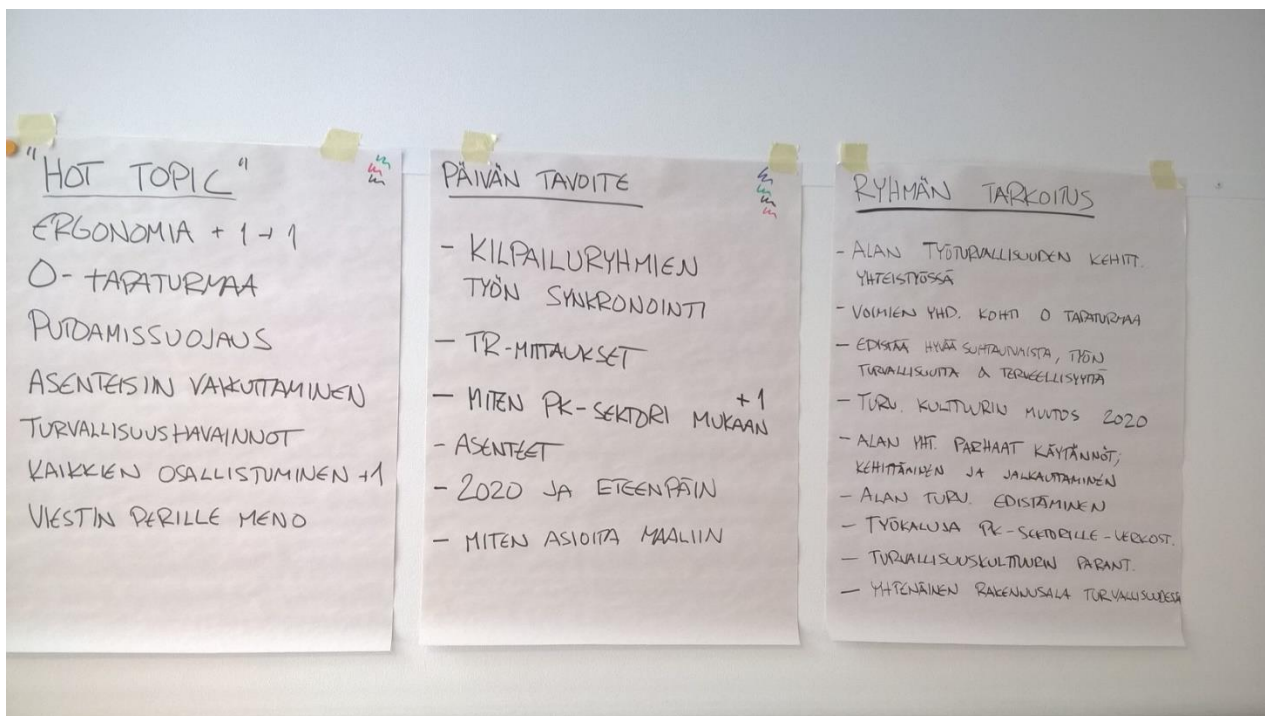 "HOT TOPIC"
ERGONOMIA + 1 + 1
0 - TAPATURMAA
PUTOAMISSUOJAUS
ASENTEISIIN VAIKUTTAMINEN
TURVALLISUUSHAVAINNOT
KAIKKIEN OSALLISTUMINEN +1
VIESTIN PERILLE MENO
PÄIVÄN TAVOITE
- KILPAILURYHMIEN
TYÖN SYNKRONOINTI
- TR-MITTAUKSET
- MITEN PK-SEKTORI MUKAAN +1
- ASENTEET
- 2020 JA ETEENPÄIN
- MITEN ASIOITA MAALIIN
RYHMÄN TARKOITUS
- ALAN TYÖTURVALLISUUDEN KEHITT.
YHTEISTYÖSSÄ
- VOIMIEN YHD. KOHTI 0 TAPATURMAA
- EDISTÄÄ HYVÄÄ SUHTAUTUMISTA, TYÖN
TURVALLISUUTTA & TERVEELLISYYTTÄ
- TURV. KULTTUURIN MUUTOS 2020
- ALAN YHT. PARHAAT KÄYTÄNNÖT,
KEHITTÄMINEN JA JALKAUTTAMINEN
- ALAN TURV. EDISTÄMINEN
- TYÖKALUJA PK-SEKTORILLE - VERKOST.
- TURVALLISUUSKULTTUURIN PARANT.
- YHTENÄINEN RAKENNUSALA TURVALLISUUDESSA